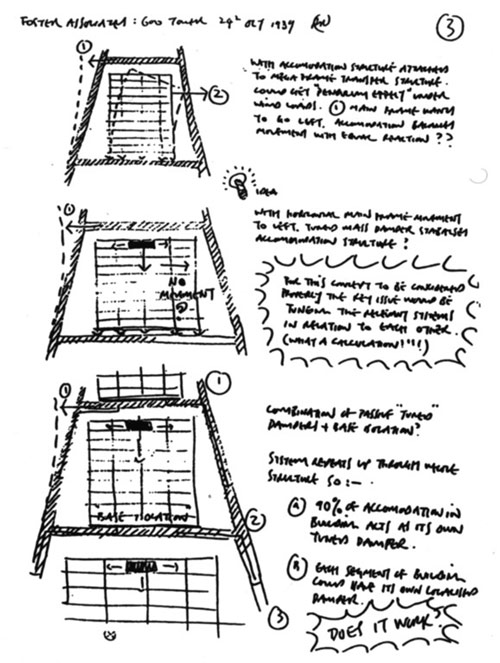 FOSTER ASSOCIATES: 600 TOWER 24th OCT 1989
③
①
②
WITH ACCOMODATION STRUCTURE ATTACHED
TO MEGA FRAME TRANSFER STRUCTURE.
COULD GET "PENDULUM EFFECT" UNDER
WIND LOADS. ① MAIN FRAME WANTS
TO GO LEFT, ACCOMODATION BALANCES
MOVEMENT WITH EQUAL REACTION ??
IDEA
①
NO
MOVEMENT
?
WITH HORIZONTAL MAIN FRAME MOVEMENT
TO LEFT, TUNED MASS DAMPER STABILISES
ACCOMODATION STRUCTURE ?
FOR THIS CONCEPT TO BE CONSIDERED
PROPERLY THE KEY ISSUE WOULD BE
TUNING THE RELEVANT SYSTEMS
IN RELATION TO EACH OTHER.
(WHAT A CALCULATION!"!!)
①
①
BASE ISOLATION
②
③
COMBINATION OF PASSIVE "TUNED"
DAMPERS + BASE ISOLATION?
SYSTEM REPEATS UP THROUGH WHOLE
STRUCTURE SO:-
Ⓐ 90% OF ACCOMODATION IN
BUILDING ACTS AS ITS OWN
TUNED DAMPER.
Ⓑ EACH SEGMENT OF BUILDING
COULD HAVE ITS OWN LOCALISED
DAMPER.
DOES IT WORK?